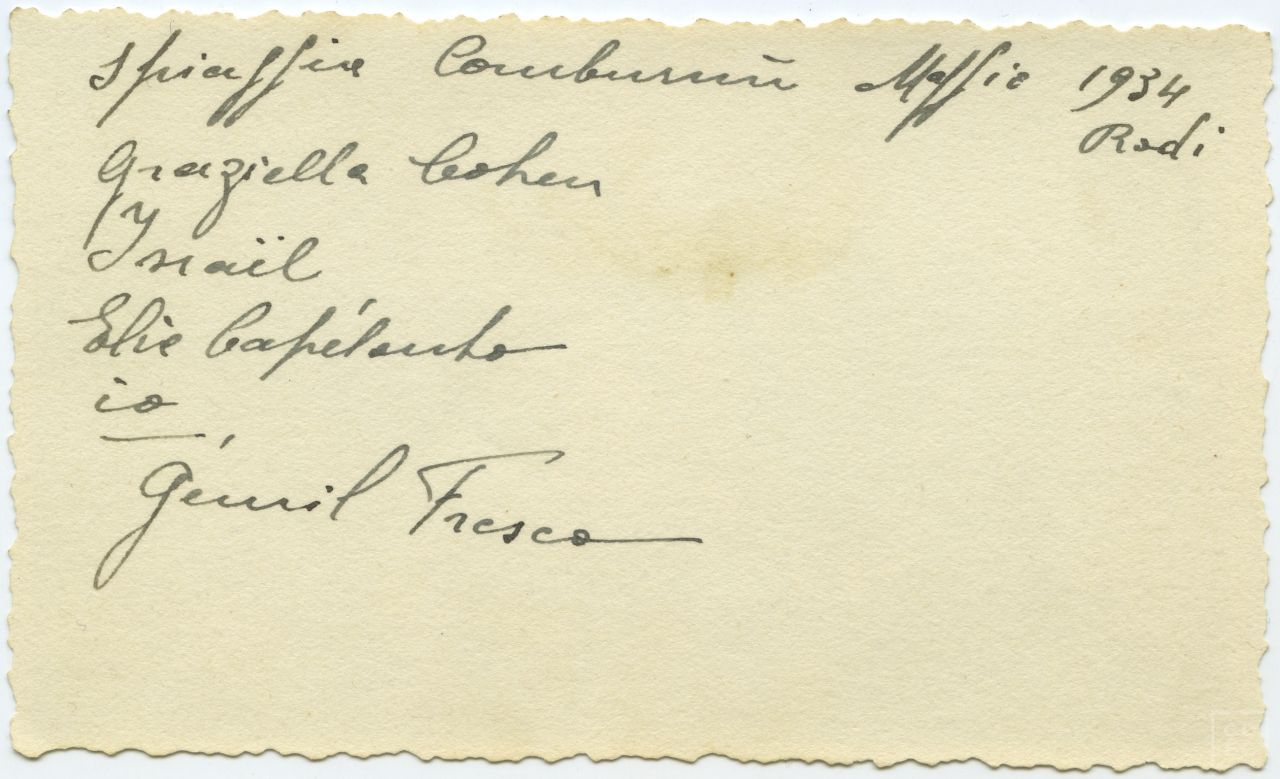 Spiaggia Comburnù Maggio 1934
Rodi
Graziella Cohen
Israël
Elie Capélouto
io
Gémil Fresco